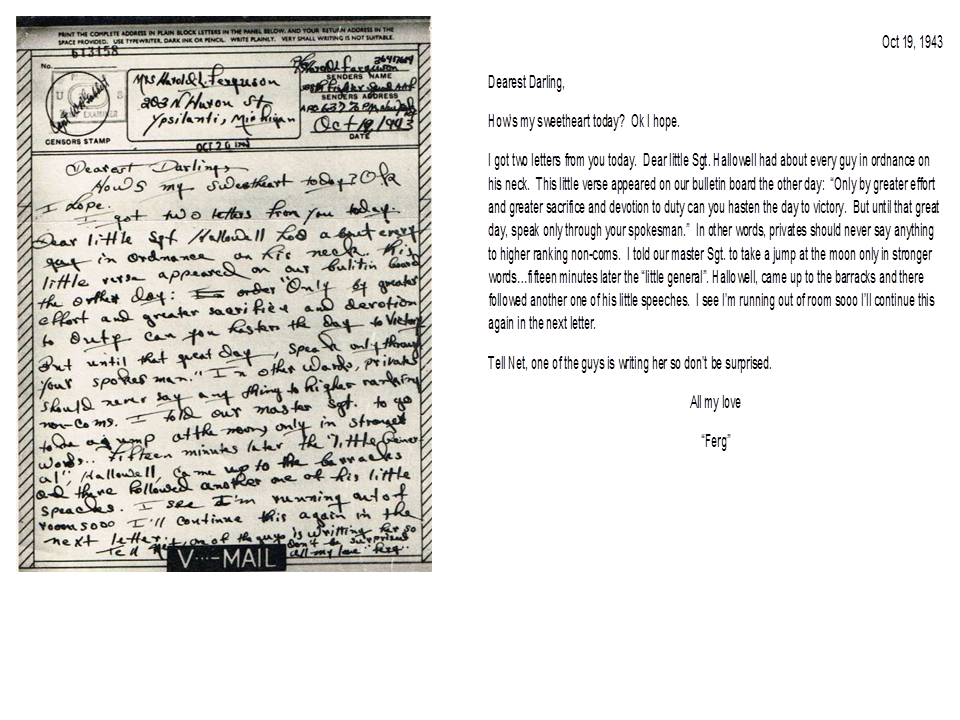 PRINT THE COMPLETE ADDRESS IN PLAIN BLOCK LETTERS IN THE PANEL BELOW, AND YOUR RETURN ADDRESS IN THE
SPACE PROVIDED. USE TYPEWRITER, DARK INK OR PENCIL. WRITE PLAINLY. VERY SMALL WRITING IS NOT SUITABLE.
613158
No.
CENSORS STAMP
Mrs Harold L. Ferguson
203 N Huron St
Ypsilanti, Michigan
Harold L. Ferguson
SENDERS NAME
SENDERS ADDRESS
Oct 19, 1943
DATE
OCT 26
Dearest Darling,
How's my sweetheart today? Ok
I hope.
I got two letters from you today.
Dear little Sgt Hallowell had about every
guy in Ordnance on his neck. This
little verse appeared on our bulitin board
the other day: order "Only by greater
effort and greater sacrifice and devotion
to Duty can you hasten the day to Victory
But until that great day, speak only through
your spokesman." In other words, privates
should never say any thing to higher ranking
non-coms. I told our master Sgt. to go
take a jump at the moon, only in stronger
words.. Fifteen minutes later the "little Gener
al", Hallowell, came up to the barracks
and there followed another one of his little
speaches. I see I'm running out of
room sooo I'll continue this again in the
next letter.
Tell Net, one of the guys is writting her so
don't be surprised
all my love "Ferg"
V···-MAIL
Oct 19, 1943
Dearest Darling,
How's my sweetheart today? Ok I hope.
I got two letters from you today. Dear little Sgt. Hallowell had about every guy in ordnance on
his neck. This little verse appeared on our bulletin board the other day: “Only by greater effort
and greater sacrifice and devotion to duty can you hasten the day to victory. But until that great
day, speak only through your spokesman.” In other words, privates should never say anything
to higher ranking non-coms. I told our master Sgt. to take a jump at the moon only in stronger
words…fifteen minutes later the “little general”. Hallowell, came up to the barracks and there
followed another one of his little speeches. I see I’m running out of room sooo I’ll continue this
again in the next letter.
Tell Net, one of the guys is writing her so don’t be surprised.
All my love
“Ferg”